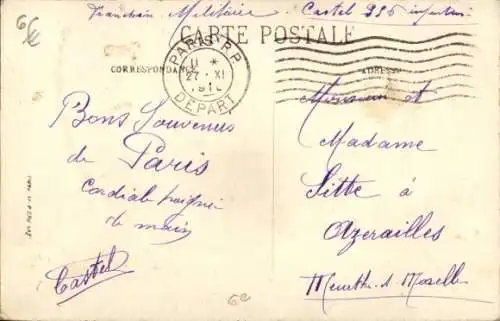 6€
Franchise Militaire Castel 236 infanterie
CARTE POSTALE
CORRESPONDANCE
ADRESSE
PARIS R.P.
11 *
27 · XI
DÉPART
Bons Souvenirs
de Paris
Cordiale poignée
de main
Castel
Monsieur et
Madame
Sitte à
Azerailles
Meurthe-et-Moselle
6€